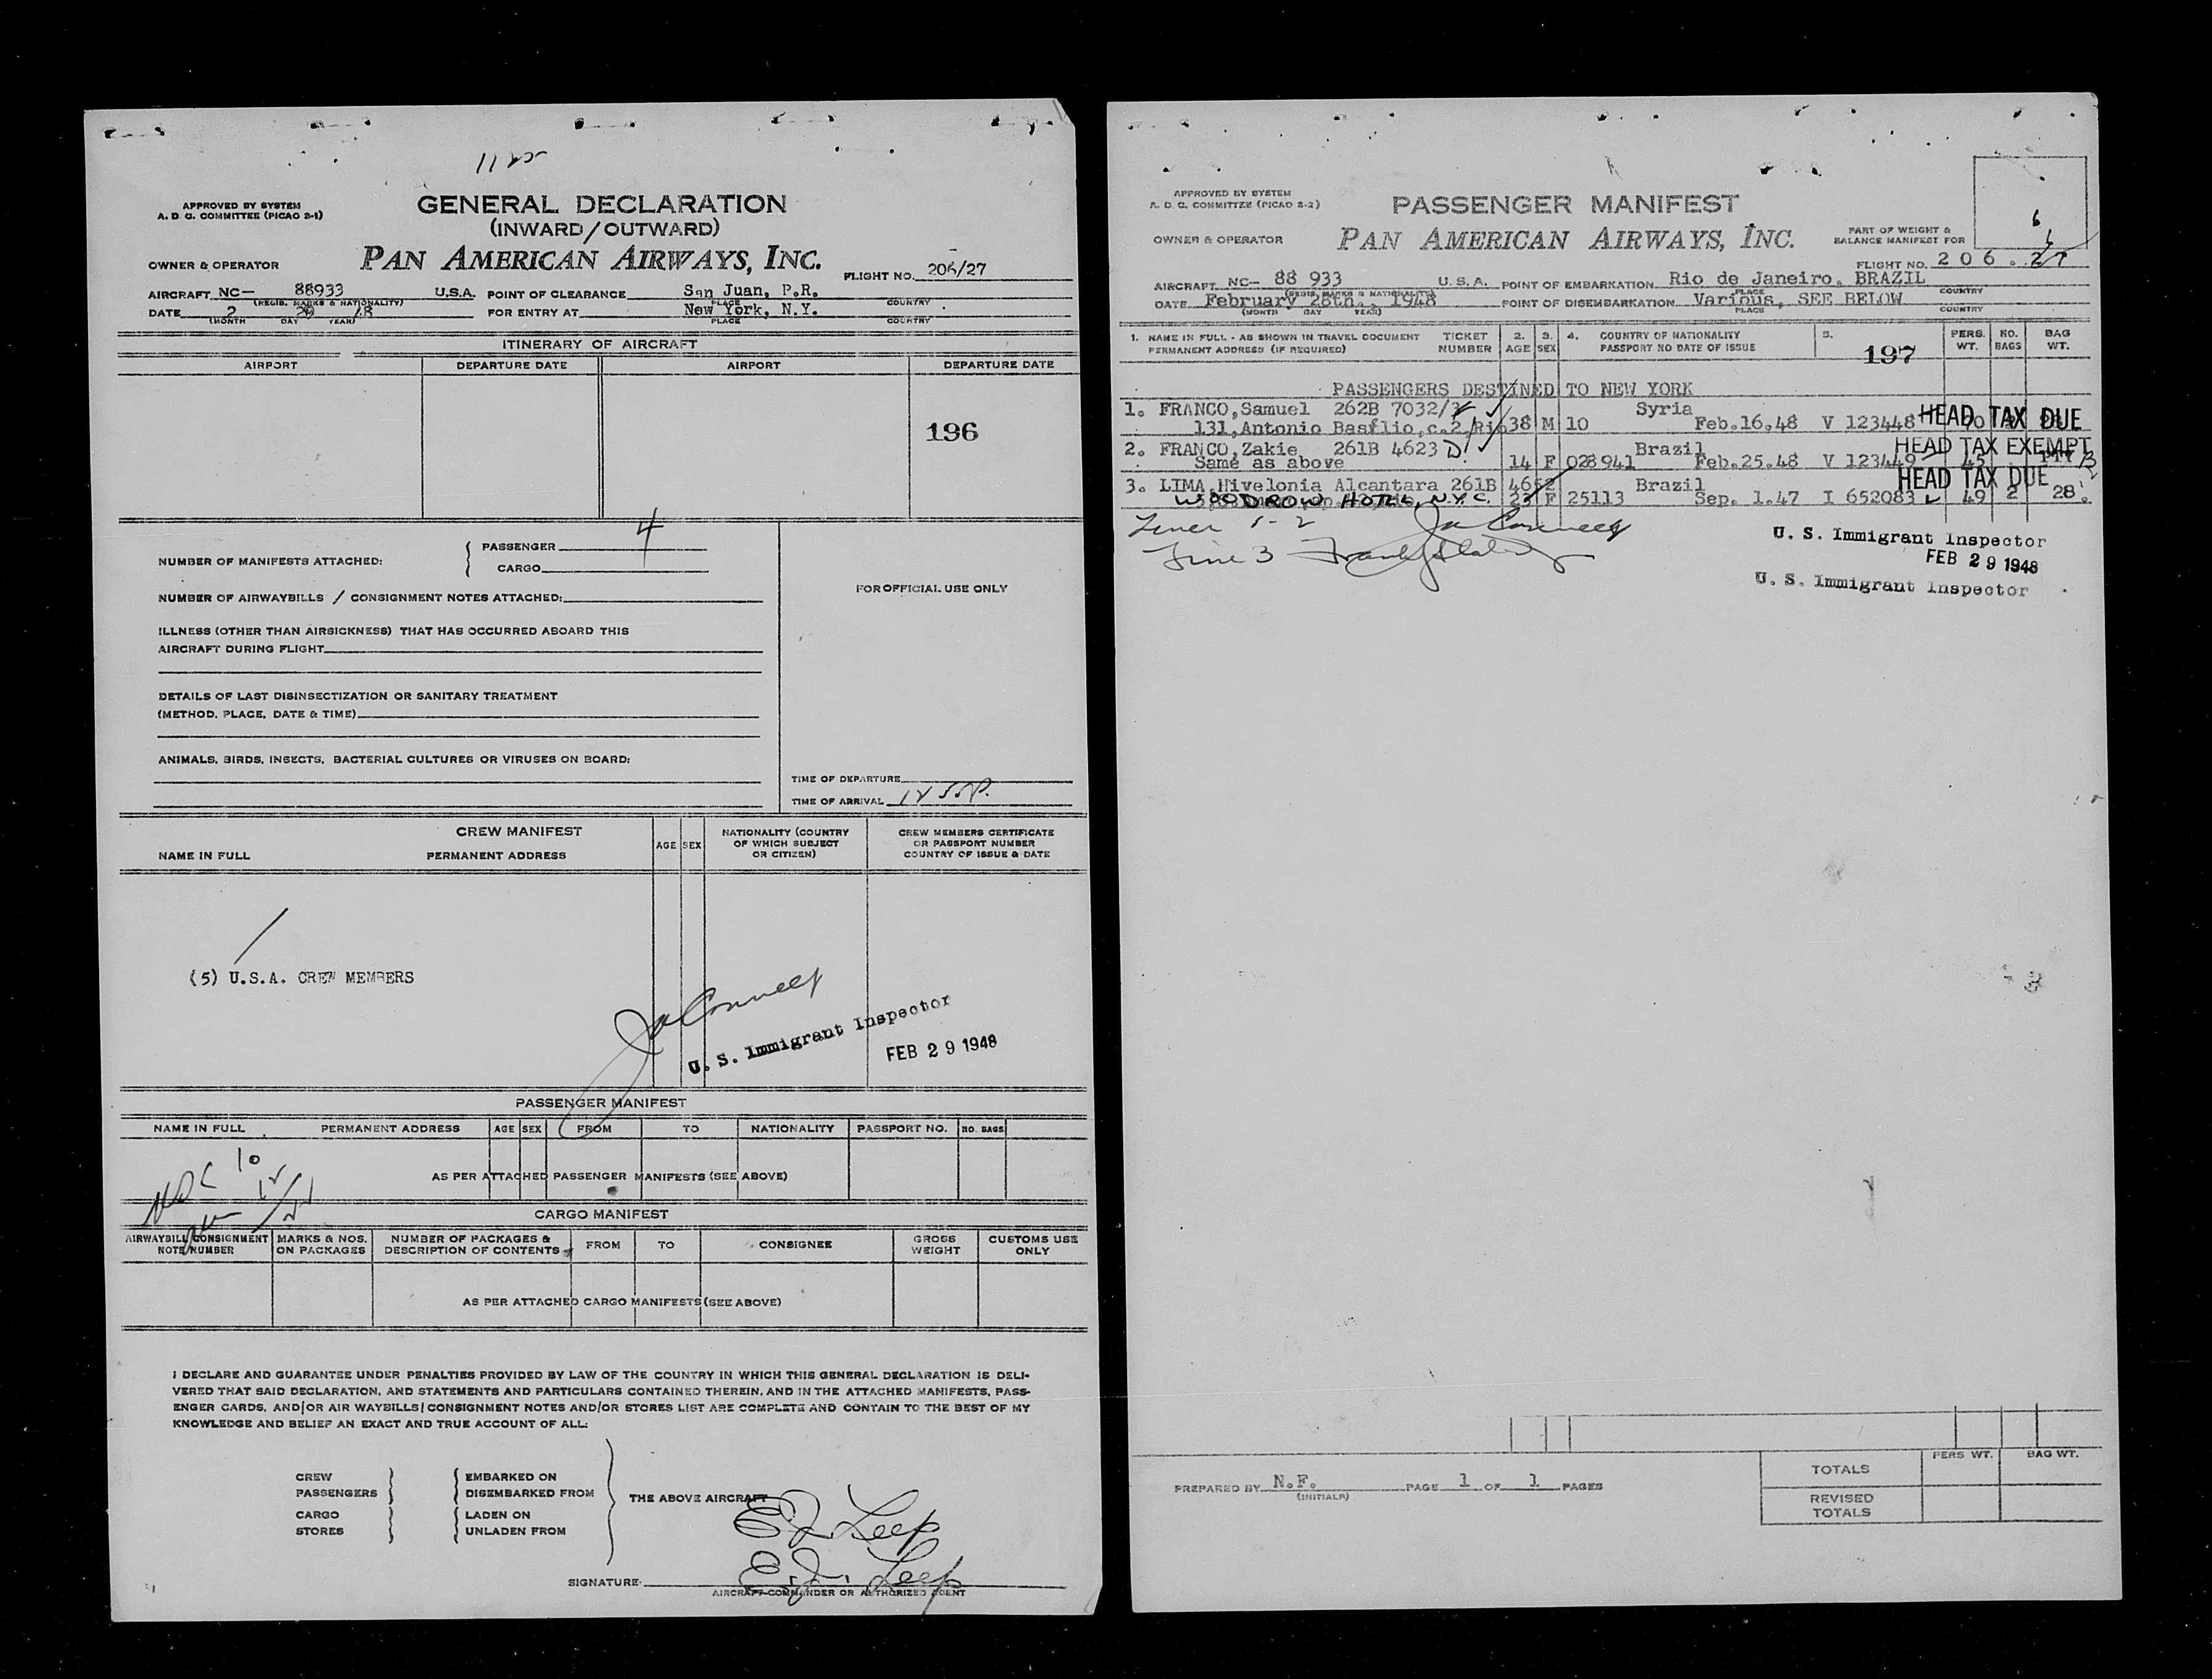 1125
APPROVED BY SYSTEM
A. D. C. COMMITTEE (PICAO 2-1)
GENERAL DECLARATION
(INWARD/OUTWARD)
PAN AMERICAN AIRWAYS, INC.
OWNER & OPERATOR
FLIGHT NO. 206/27
AIRCRAFT NC— 88933 U.S.A. POINT OF CLEARANCE San Juan, P.R.
(REGIS. MARKS & NATIONALITY) PLACE COUNTRY
DATE 2 29 48 FOR ENTRY AT New York, N.Y.
(MONTH DAY YEAR) PLACE COUNTRY
ITINERARY OF AIRCRAFT
AIRPORT DEPARTURE DATE AIRPORT DEPARTURE DATE
196
NUMBER OF MANIFESTS ATTACHED: { PASSENGER 4
CARGO
NUMBER OF AIRWAYBILLS / CONSIGNMENT NOTES ATTACHED:
FOR OFFICIAL USE ONLY
ILLNESS (OTHER THAN AIRSICKNESS) THAT HAS OCCURRED ABOARD THIS
AIRCRAFT DURING FLIGHT
DETAILS OF LAST DISINSECTIZATION OR SANITARY TREATMENT
(METHOD, PLACE, DATE & TIME)
ANIMALS, BIRDS, INSECTS, BACTERIAL CULTURES OR VIRUSES ON BOARD:
TIME OF DEPARTURE
TIME OF ARRIVAL 1255P.
CREW MANIFEST
NAME IN FULL PERMANENT ADDRESS AGE SEX NATIONALITY (COUNTRY OF WHICH SUBJECT OR CITIZEN) CREW MEMBERS CERTIFICATE OR PASSPORT NUMBER COUNTRY OF ISSUE & DATE
(5) U.S.A. CREW MEMBERS
U. S. Immigrant Inspector
FEB 29 1948
PASSENGER MANIFEST
NAME IN FULL PERMANENT ADDRESS AGE SEX FROM TO NATIONALITY PASSPORT NO. NO. BAGS
10
AS PER ATTACHED PASSENGER MANIFESTS (SEE ABOVE)
CARGO MANIFEST
AIRWAYBILL/CONSIGNMENT NOTE NUMBER MARKS & NOS. ON PACKAGES NUMBER OF PACKAGES & DESCRIPTION OF CONTENTS FROM TO CONSIGNEE GROSS WEIGHT CUSTOMS USE ONLY
AS PER ATTACHED CARGO MANIFESTS (SEE ABOVE)
I DECLARE AND GUARANTEE UNDER PENALTIES PROVIDED BY LAW OF THE COUNTRY IN WHICH THIS GENERAL DECLARATION IS DELI-
VERED THAT SAID DECLARATION, AND STATEMENTS AND PARTICULARS CONTAINED THEREIN, AND IN THE ATTACHED MANIFESTS, PASS-
ENGER CARDS, AND/OR AIR WAYBILLS/CONSIGNMENT NOTES AND/OR STORES LIST ARE COMPLETE AND CONTAIN TO THE BEST OF MY
KNOWLEDGE AND BELIEF AN EXACT AND TRUE ACCOUNT OF ALL:
CREW EMBARKED ON
PASSENGERS DISEMBARKED FROM THE ABOVE AIRCRAFT
CARGO LADEN ON
STORES UNLADEN FROM
E.J. Leep
E.J. Leep
SIGNATURE:
AIRCRAFT COMMANDER OR AUTHORIZED AGENT
APPROVED BY SYSTEM
A. D. C. COMMITTEE (PICAO 2-2)
PASSENGER MANIFEST
OWNER & OPERATOR PAN AMERICAN AIRWAYS, INC.
PART OF WEIGHT &
BALANCE MANIFEST FOR
6
FLIGHT NO. 206.27
AIRCRAFT NC— 88 933 U.S.A. POINT OF EMBARKATION Rio de Janeiro, BRAZIL
(REGIS. MARKS & NATIONALITY) PLACE COUNTRY
DATE February 28th., 1948 POINT OF DISEMBARKATION Various, SEE BELOW
(MONTH DAY YEAR) PLACE COUNTRY
1. NAME IN FULL - AS SHOWN IN TRAVEL DOCUMENT TICKET 2. 3. 4. COUNTRY OF NATIONALITY 5. PERS. NO. BAG
PERMANENT ADDRESS (IF REQUIRED) NUMBER AGE SEX PASSPORT NO DATE OF ISSUE 197 WT. BAGS WT.
PASSENGERS DESTINED TO NEW YORK
1. FRANCO, Samuel 262B 7032/3 Syria
131, Antonio Basílio, c.2, Rio 38 M 10 Feb.16.48 V 123448 HEAD TAX DUE
2. FRANCO, Zakie 261B 4623 Brazil HEAD TAX EXEMPT
Same as above 14 F 028941 Feb.25.48 V 123449 45
3. LIMA, Hivelonia Alcantara 261B 4652 Brazil HEAD TAX DUE
WOODROW HOTEL, N.Y.C. 23 F 25113 Sep. 1.47 I 652083 49 2 28
Lines 1-2
Line 3
U. S. Immigrant Inspector
FEB 29 1948
U. S. Immigrant Inspector
PREPARED BY N.F. PAGE 1 OF 1 PAGES
(INITIALS)
PERS WT. BAG WT.
TOTALS
REVISED
TOTALS